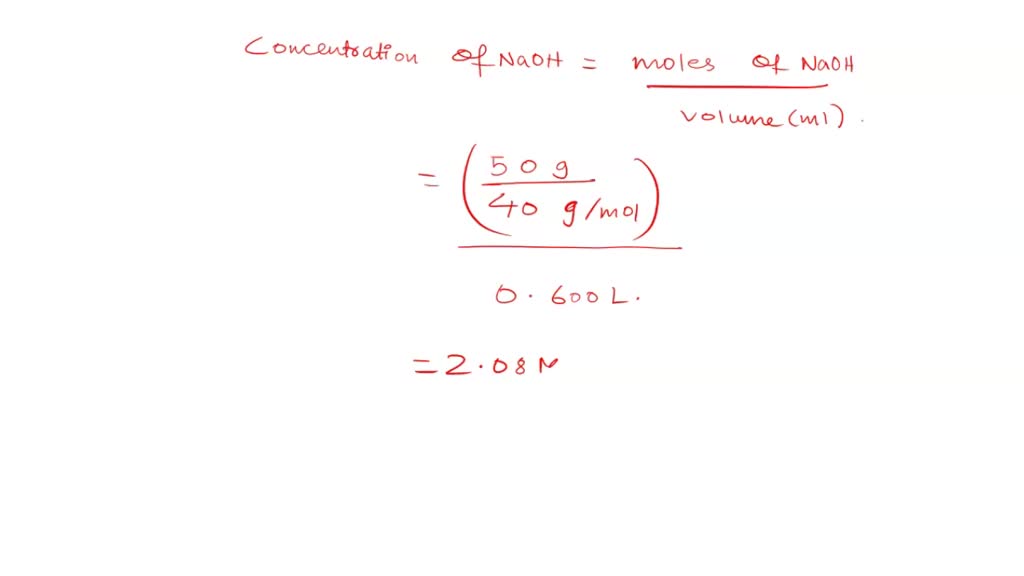 Concentration of NaOH = moles of NaOH
volume (ml).
= (50 g
40 g/mol)
0.600 L.
= 2.08 M